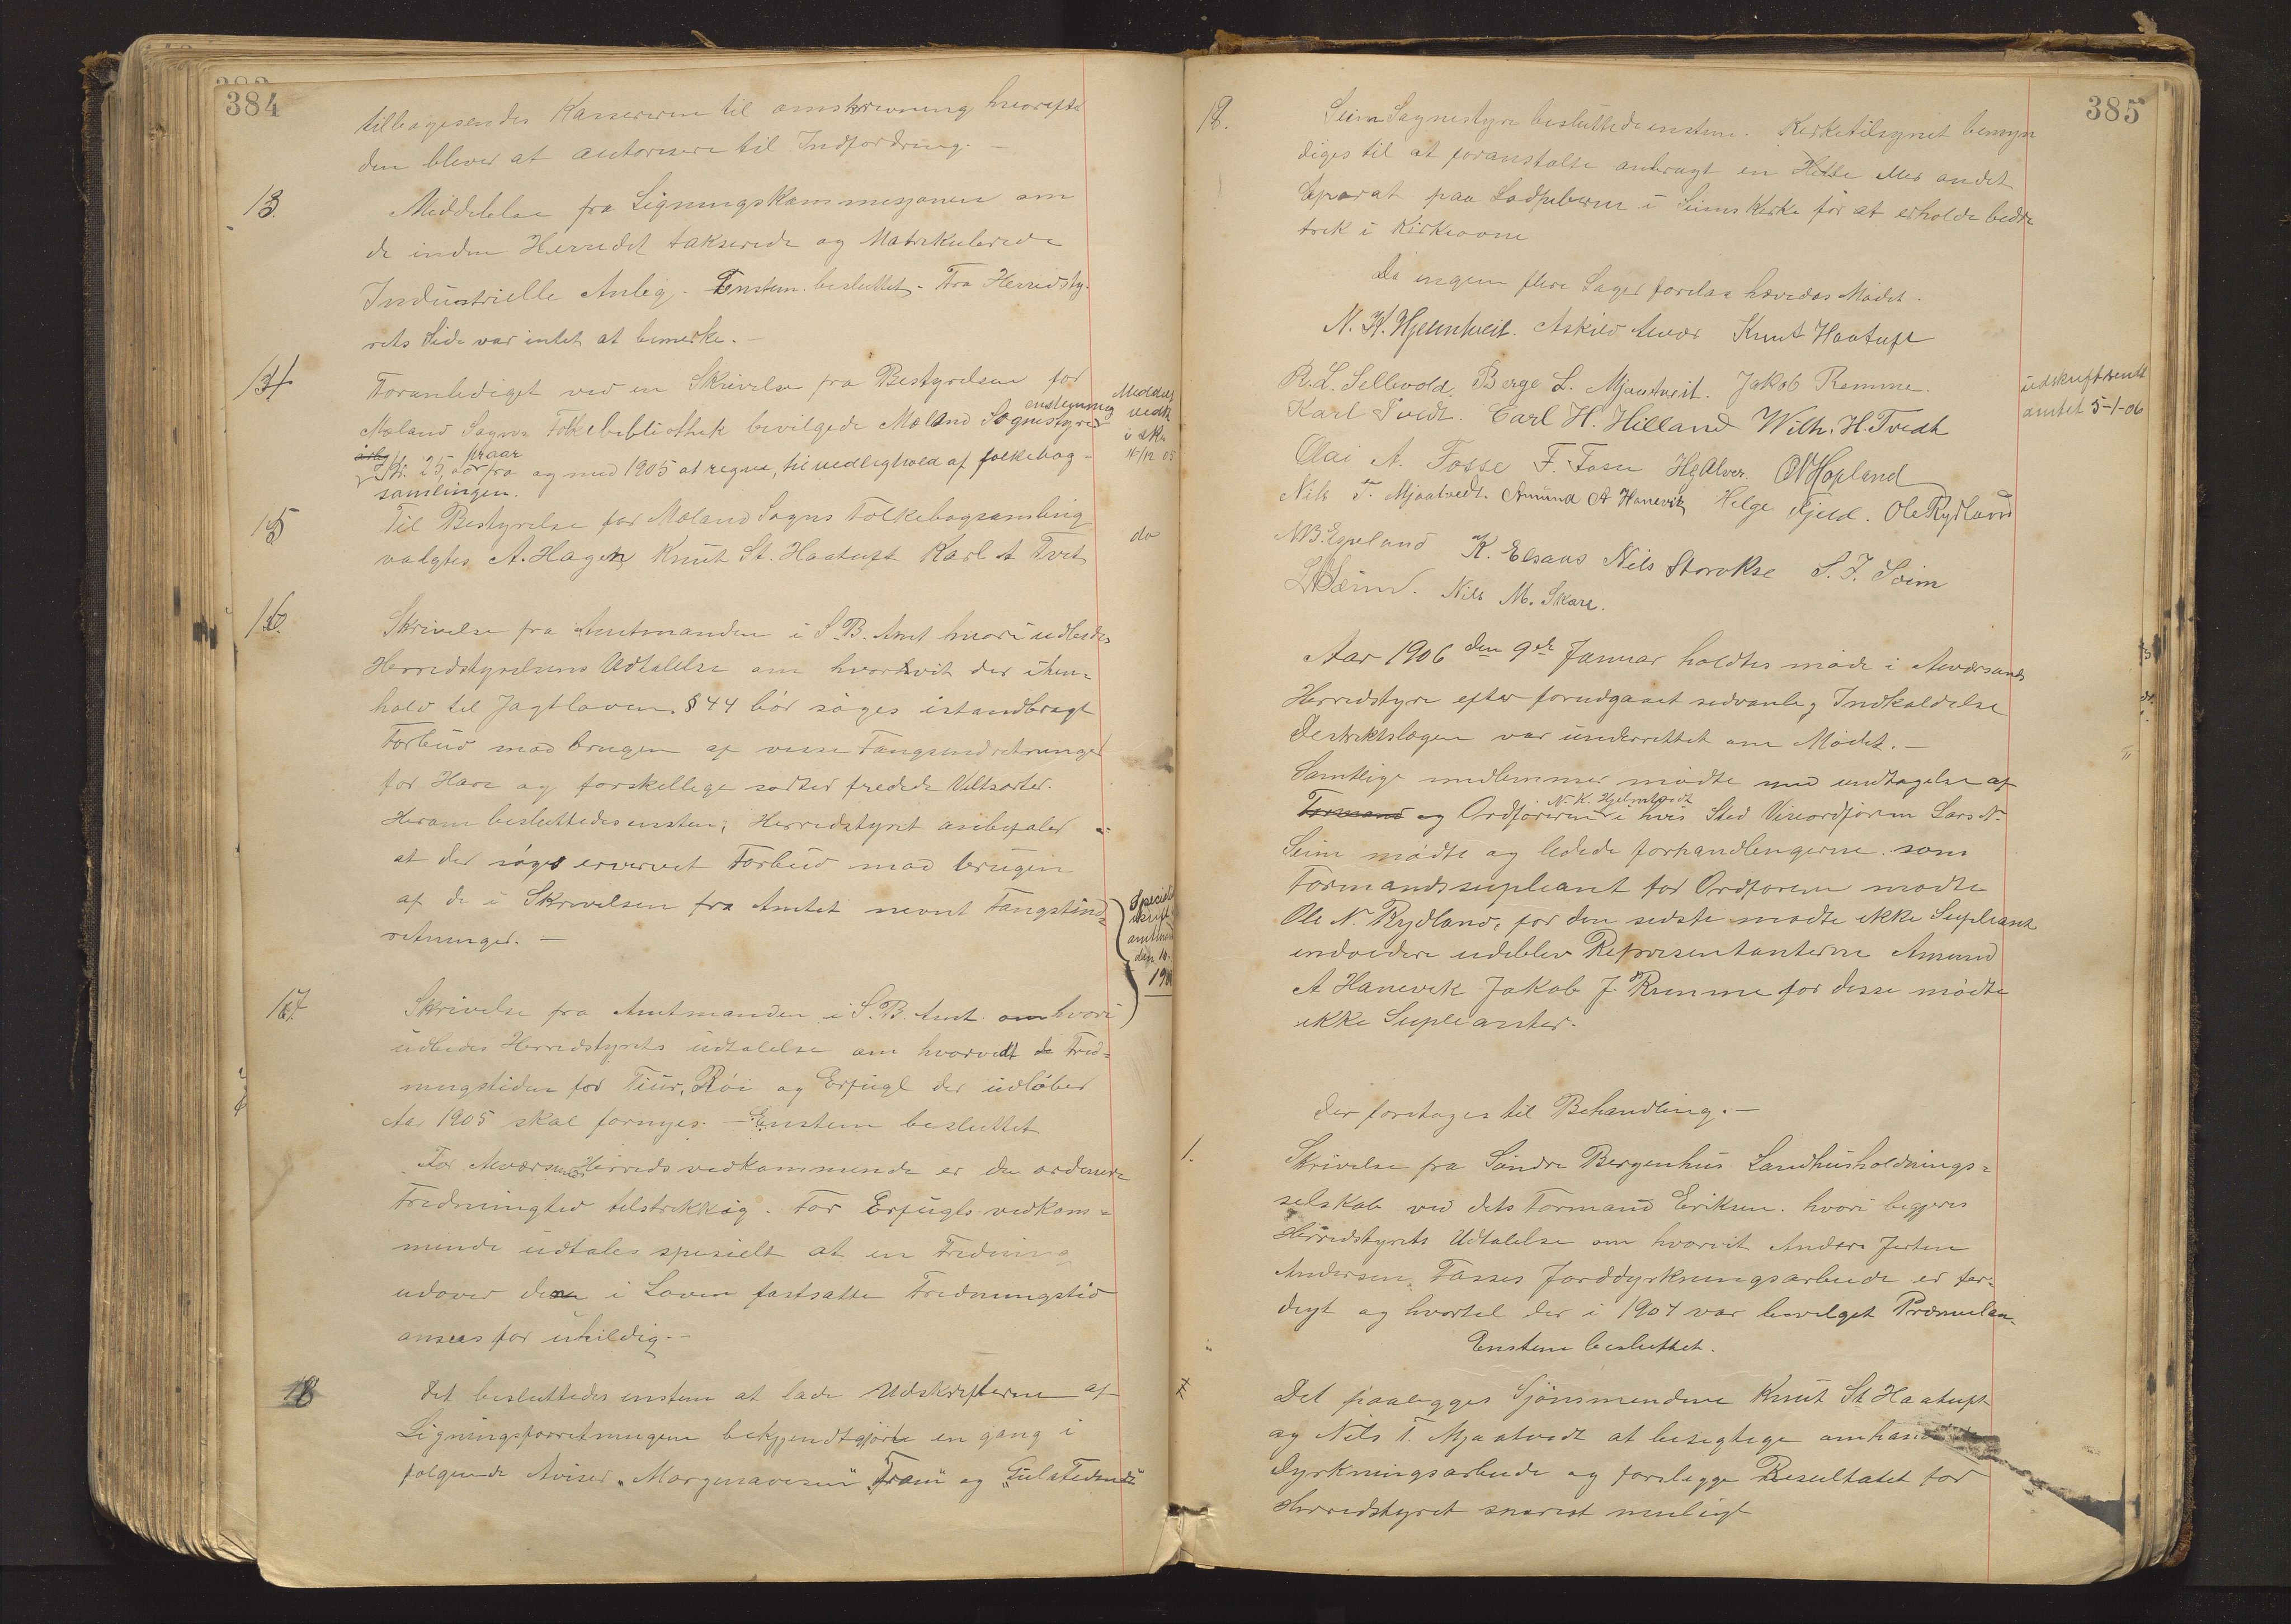 384
tilbagesendes Kassereren til omskrivning hvorefter
den blever at autorisere til Indfordring. —
13. Meddelelse fra Ligningskommissjonen om
de inden Herredet takserede og Matrikulerede
Industrielle Anlæg. Enstem. besluttet. Fra Herredsty-
rets Side var intet at bemerke. —
14. Foranlediget ved en Skrivelse fra Bestyrelsen for
Mæland Sogns Folkebibliothek bevilgede Mæland Sognestyre enstemmig
Kr. 25, praar fra og med 1905 at regne, til vedlighold af folkebog-
samlingen.
Meddelt
vedk
i
14/12 05
15 Til Bestyrelse for Mæland Sogns Folkebogsamling
valgtes A. Hagen Knut St. Haatuft Karl A Tvet
do
16. Skrivelse fra Amtmanden i S. B. Amt hvori udbedes
Herredstyrelsens Udtalelse om hvorvit der i hen-
hold til Jagtloven § 44 bör söges istandbragt
Forbud mod brugen af visse Fangsindretninger
for Hare og forskellige sorter fredede Viltsorter.
Herom besluttedes enstem; Herredstyret anbefaler
at der söges ervervet Forbud mod brugen
af de i Skrivelsen fra Amtet nevnt Fangstind-
retninger. —
17. Skrivelse fra Amtmanden i S. B. Amt om hvori
udbedes Herredstyrets udtalelse om hvorvidt de Fred-
ningstiden for Tiur, Röi og Erfugl der udlöber
Aa 1905 skal fornyes. — Enstem besluttet
For Alversund Herreds vedkommende er den ordinere
Fredningtid tilstrekkig. For Erfugls vedkom-
mende udtales spesielt at en Fredning
udover den i Loven fastsatte Fredningstid
ansees for uheldig. —
18 Det besluttedes enstem at lade Udskrifterne af
Ligningsforretningene bekjendtgjörte en gang i
folgende Aviser „Morgenavisen" „Fram" og „Gula Tidend"
385
19. Seim Sognestyre besluttede enstem. Kirketilsynet bemyn
diges til at foranstalte anbragt en Hette eller andet
Aparat paa Lodpiberne i Seims Kirke for at erholde bedre
trek i Kirkeovne
Da ingen flere Sager forelaa hævedes Mödet.
N. K. Hjelmtveit. Askild Alver Knut Haatuft
R. L. Sellevold. Berge L. Mjaatveit. Jakob Remme.
udskrift sendt
amtet 5-1-06
Karl Tvedt. Carl H. Hilland Wilh. H. Tvedt
Olai A. Fosse F. Fosse Hg Alver. ON Hopland
Nils T. Mjaatvedt. Amund A Hanevik Helge Fjeld. Ole Rydland
N B. Egeland K. Elsaas Nils Storokse S. J. Seim
L N Seim. Nils M. Skare.
Aar 1906 den 9de Januar holdtes möde i Alversunds
Herredstyre efter forudgaaet sedvanlig Indkaldelse
Destriktslægen var underrettet om Mödet. —
Samtlige medlemmer mödte med undtagelse af
Formand og Ordföreren N. K. Hjelmtvedt i hvis Sted Viseordförern Lars N.
Seim mödte og ledede forhandlingerne. som
Formandssupleant for Ordforern mödte
Ole N. Rydland, for den sidste mödte ikke Supleant
endvidere udeblev Repræsentanterne Amund
A Hanevik Jakob J. Remme for disse mödte
ikke Supleanter.
Der foretages til Behandling. —
1. Skrivelse fra Söndre Bergenhus Landhusholdnings-
selskab ved dets Formand Eriksen. hvori begjeres
Herredstyrets Udtalelse om hvorvit Anders Jerten
Andersen Fosses Jorddyrkningsarbeide er fer-
digt og hvortil der i 1904 var bevilget Præmielån.
Enstem besluttet.
Det paalegges Sjönsmendene Knut St Haatuft
og Nils T. Mjaatvedt at besigtige
Dyrkningsarbeide og forelegge Resultatet for
Herredstyret snarest muligt